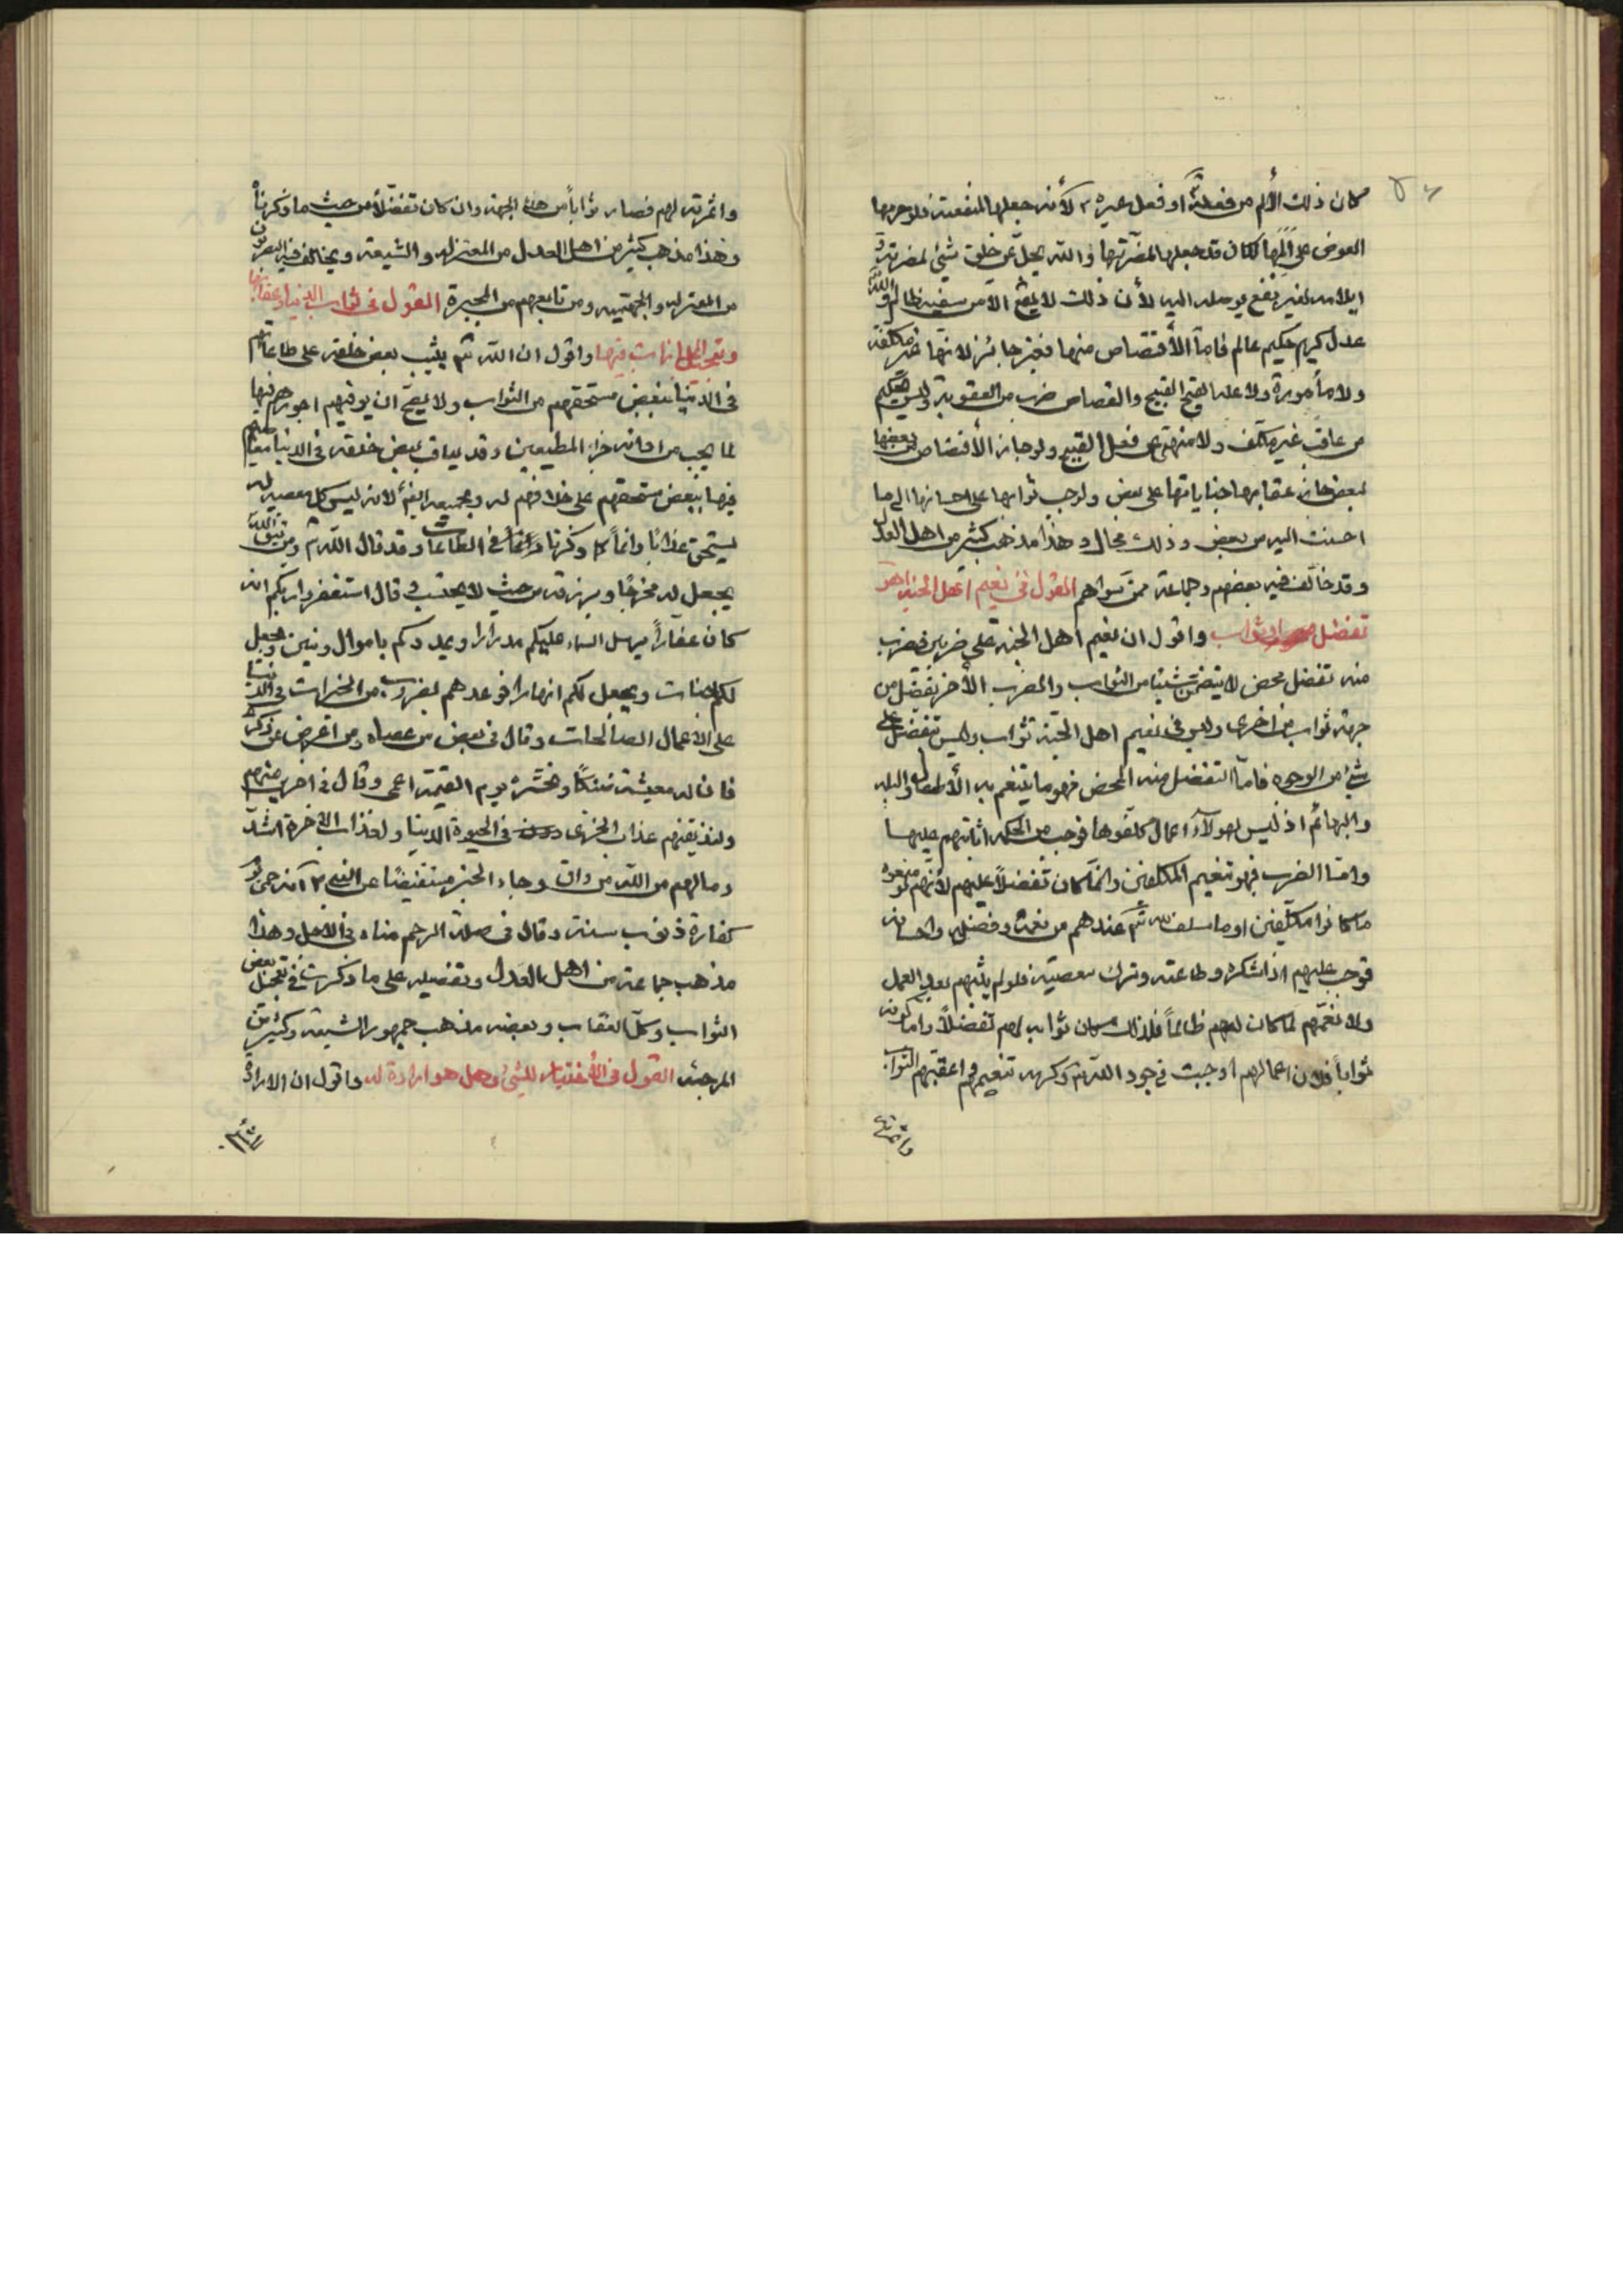 كان ذلك الألم من فعله تم او فعل غيره لأنه جعلها لمنفعته فلو حرمها
العوض على المها لكان قد جعلها لمضرتها والله يجل عن خلق شئ لمضرته و
ايلامه لغير نفع يوصله اليه لأن ذلك لا يقع الا من سفيه ظالم والله
عدل كريم حكيم عالم فاما الأقتصاص منها فغير جائز لانها غير مكلفة
ولا مأمورة ولا عالمة بقبح القبيح والقصاص ضرب من العقوبة وليس بحكيم
من عاقب غير مكلف ولا منهي عن فعل القبيح ولو جاز الأقتصاص من بعضها
لبعض جاز عقابها جناياتها على بعض ولوجب ثوابها على احسانها الى ما
احسنت اليه من بعض وذلك محال وهذا مذهب كثير من اهل العدل
وقد خالف فيه بعضهم وجماعة ممن سواهم القول في نعيم اهل الجنة اهو
تفضل او ثواب واقول ان نعيم اهل الجنة على ضربين فضرب
منه تفضل محض لا يتضمن شيئا من الثواب والضرب الأخر تفضل من
جهة ثواب من اخرى وليس في نعيم اهل الجنة ثواب وليس بتفضل على
شئ من الوجوه فاما التفضل منه المحض فهو ما يتنعم به الأطفال والبله
والبهائم اذ ليس لهولاء اعمال كلفوها فوجب من الحكمة اثابتهم عليها
واما الضرب فهو تنعيم المكلفين وانما كان تفضلاً عليهم لأنهم لو منعوه
ما كانوا مظلومين اذ ما سلف لله تم عندهم من نعمه وفضله واحسانه
توجب عليهم اداء شكره وطاعته وترك معصيته فلو لم يثبهم بعد العمل
ولا نعمهم لما كان لهم ظالماً فلذلك كان ثوابه لهم تفضلاً واما كونه
ثواباً فلأن اعمالهم اوجبت في جود الله تم وكرمه تنعيمهم واعقبتهم الثواب
واثمرته
واثمرته لهم فصار ثواباً من هذه الجهة وان كان تفضلاً من حيث ما ذكرناه
وهذا مذهب كثير من اهل العدل من المعتزلة والشيعة ويخالف فيه البصريون
من المعتزلة والجهمية ومن تابعهم من المجبرة القول في ثواب الدنيا وعقابها
وتعجيل المجازات فيها واقول ان الله تم يثيب بعض خلقه على طاعاتهم
في الدنيا ببعض مستحقهم من الثواب ولا يصح ان يوفيهم اجورهم فيها
لما يجب من ادامة جزاء المطيعين وقد يعاقب بعض خلقه في الدنيا على معاصيهم
فيها ببعض مستحقهم على خلافهم له وبجميعه ايضاً لانه ليس كل معصية له
يستحق عذابا دائماً كما ذكرنا في الطاعات وقد قال الله تم ومن يتق الله
يجعل له مخرجا ويرزقه من حيث لا يحتسب وقال استغفروا ربكم انه
كان غفاراً يرسل السماء عليكم مدرارا ويمددكم باموال وبنين ويجعل
لكم جنات ويجعل لكم انهارا فوعدهم بضروب من الخيرات في الدنيا
على الاعمال الصالحات وقال في بعض من عصاه ومن اعرض عن ذكري
فان له معيشة ضنكاً ونحشره يوم القيمة اعمى وقال في اخرين منهم
ولنذيقنهم عذاب الخزي في الحيوة الدنيا ولعذاب الاخرة اشد
وما لهم من الله من واق وجاء الخبر مستفيضا عن النبي ص انه حمى يوم
كفارة ذنوب سنة وقال في صلة الرحم منساة في الاجل وهذا
مذهب جماعة من اهل العدل وتفصيله على ما ذكرت في تعجيل بعض
الثواب وكل العقاب وبعضه مذهب جمهور الشيعة وكثير من
المرجئة القول في الأختيار للشئ وهل هو ارادة له واقول ان الارادة